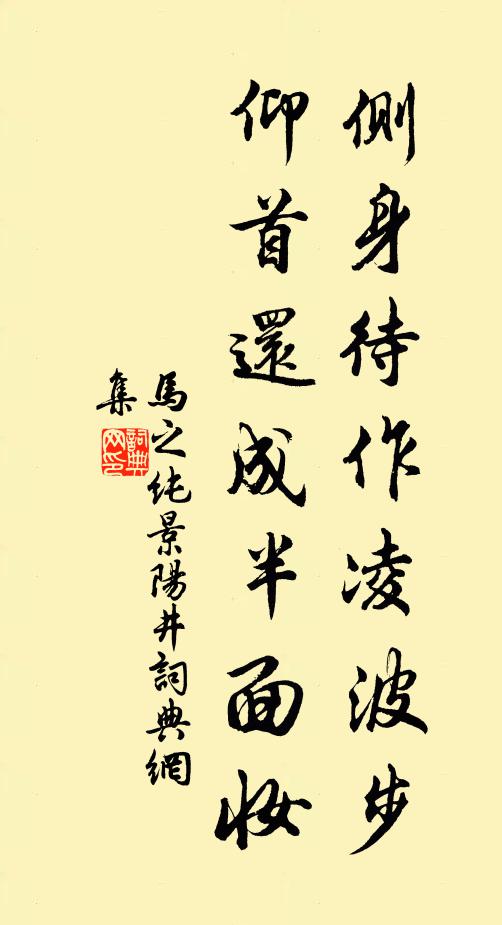 側身待作凌波步
仰首還成半面妝
馬之純景陽井詞典網
集
詞典网印